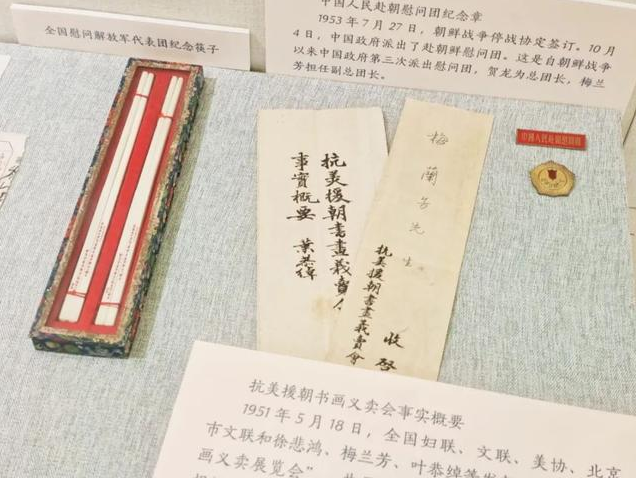 全国慰问解放军代表团纪念筷子
中国人民赴朝慰问团纪念章
1953年7月27日，朝鲜战争停战协定签订。10月
4日，中国政府派出了赴朝鲜慰问团。这是自朝鲜战争
以来中国政府第三次派出慰问团，贺龙为总团长，梅兰
芳担任副总团长。
抗美援朝書畫義賣
事實概要 葉恭綽
梅蘭芳先生
收啓
抗美援朝書畫義賣會
抗美援朝书画义卖会事实概要
1951年5月18日，全国妇联、文联、美协、北京
市文联和徐悲鸿、梅兰芳、叶恭绰等
画义卖展览会”